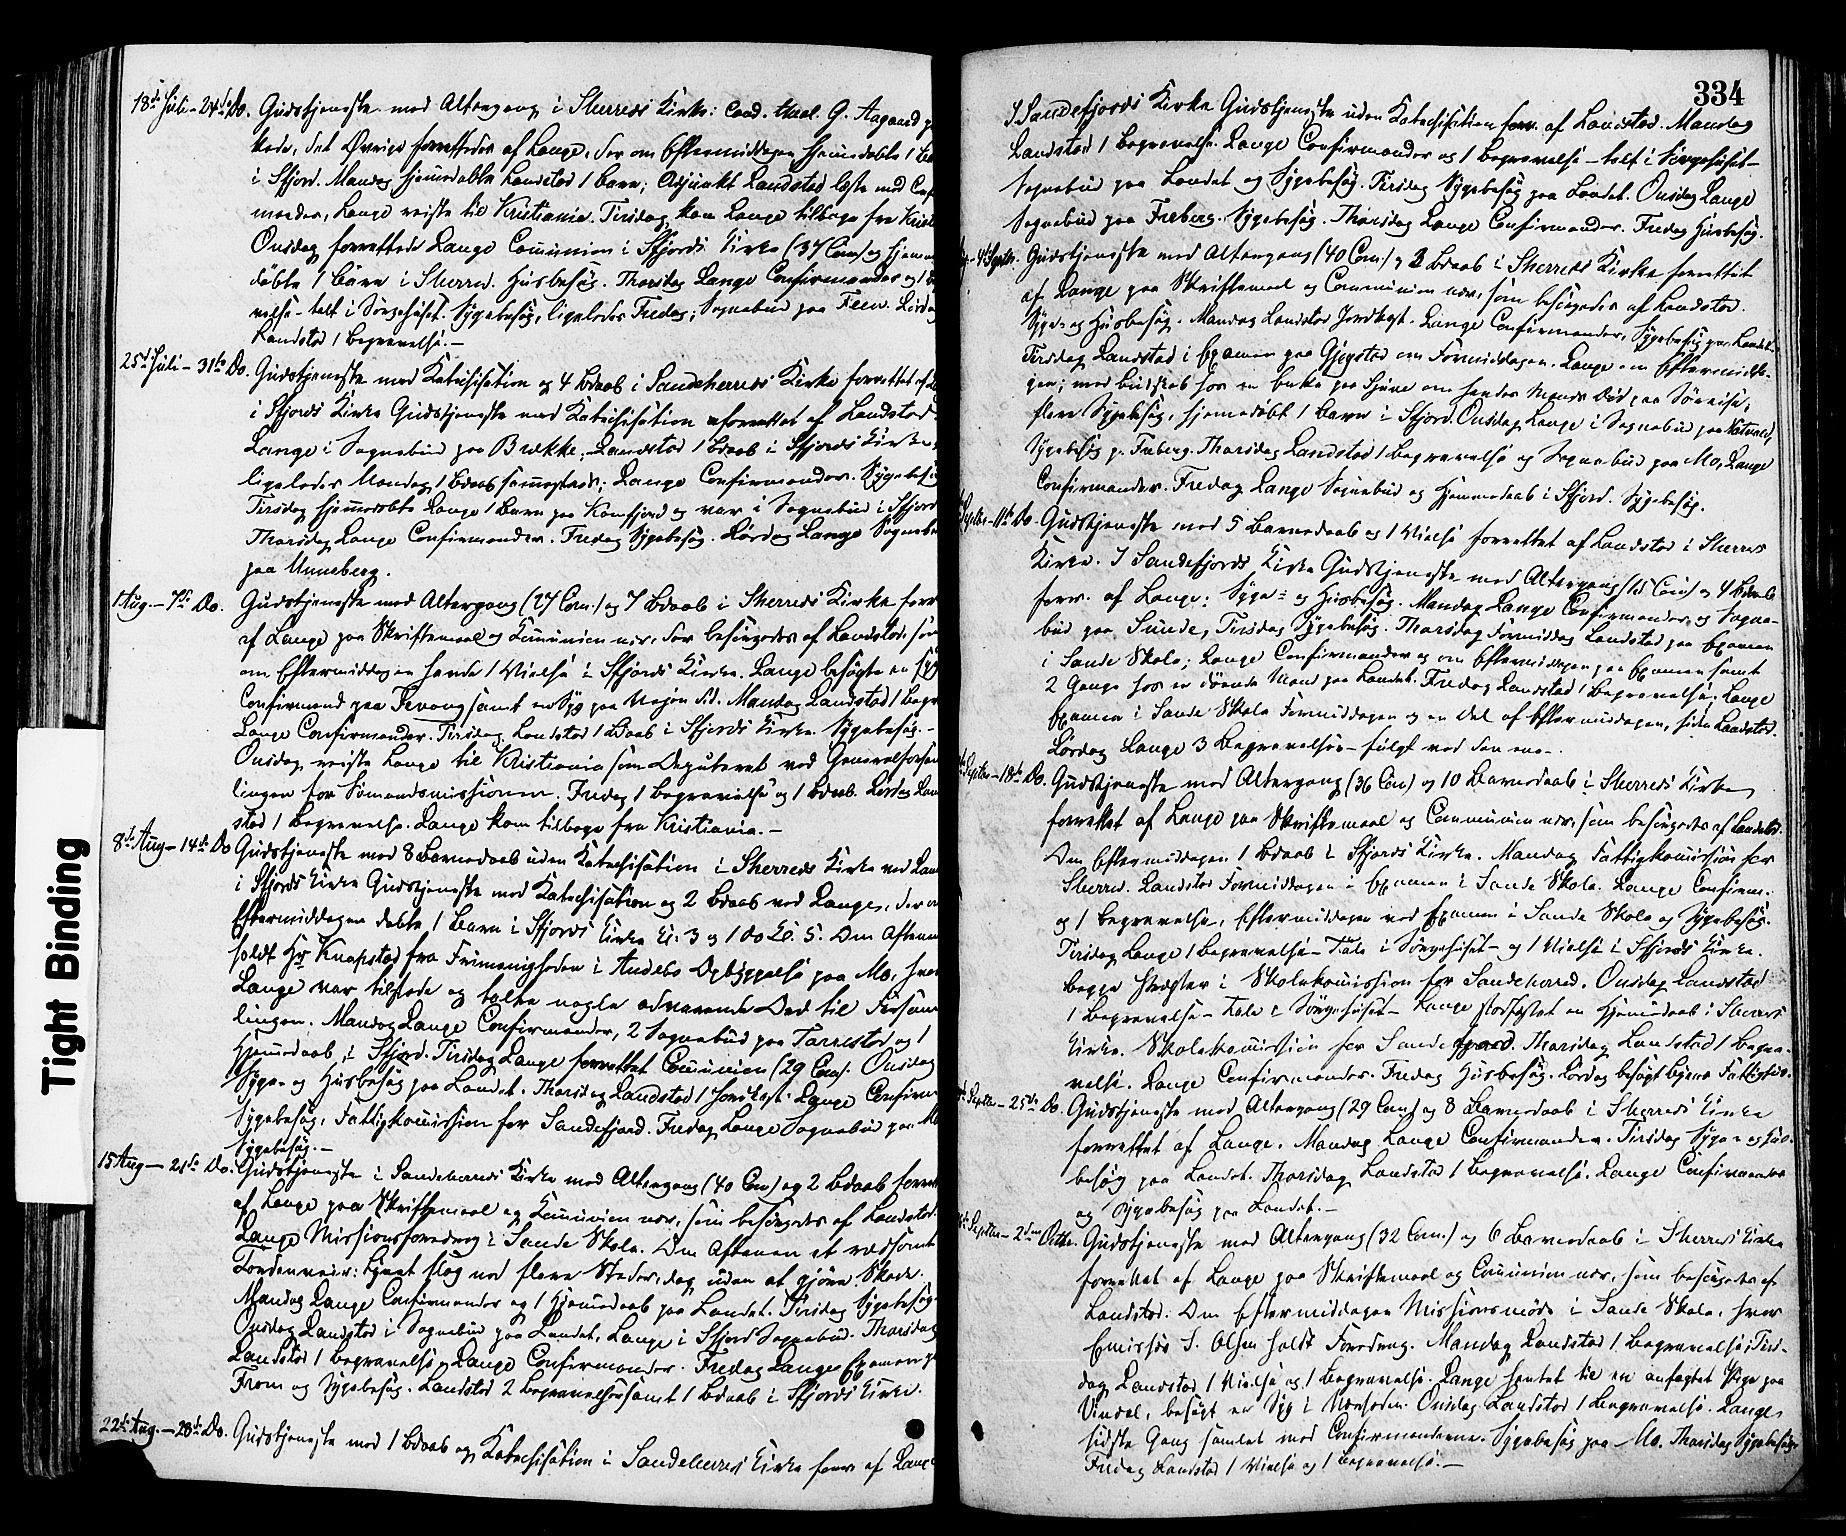 18de Juli – 24de Do. Gudstjeneste med Altergang i Sherreds Kirke: Cand. theol. G. Aagaard
kede, det Øvrige forrettedes af Lange, der om Eftermiddagen hjemmedøbte 1
i Sfjord. Mandag hjemmedøbte Landstad 1 Barn; Adjunkt Landstad læste med
manden, Lange reiste til Kristiania. Tirsdag kom Lange tilbage fra
Onsdag forrettede Lange Communion i Sfjords Kirke (37 Com.) og
døbte 1 Barn i Sherred. Husbesøg. Thorsdag Lange Confirmander og 1
velse – talt i Sørgehuset. Sygebesøg, ligeledes Fredag; Sognebud paa Feen. Lørdag
Landstad 1 Begravelse. –
25de Juli – 31te Do. Gudstjeneste med Katechisation og 4 Bdaab i Sandeherreds Kirke forrettet af
i Sfjords Kirke Gudstjeneste med Katechisation forrettet af Landstad
Lange i Sognebud paa Brække, Landstad 1 Bdaab i Sfjords Kirke
ligeledes Mandag 1 Bdaab sammesteds; Lange Confirmander. Sygebesøg
Tirsdag hjemmedøbte Lange 1 Barn paa Kamfjord og var i Sognebud i Sfjord
Thorsdag Lange Confirmander. Fredag Sygebesøg. Lørdag Lange
paa Unneberg.
1 Aug. – 7de Do. Gudstjeneste med Altergang (27 Com.) og 7 Bdaab i Sherreds Kirke
af Lange paa Skriftemaal og Communion nær, der besørgedes af Landstad, som
om Eftermiddagen havde 1 Vielse i Sfjords Kirke. Lange besøgte en
Confirmand paa samt en Syg paa Veien did. Mandag Landstad 1
Lange Confirmander. Tirsdag Landstad 1 Bdaab i Sfjords Kirke. Sygebesøg. –
Onsdag reiste Lange til Kristiania som Deputeret ved
lingen for Sømandsmissionen. Fredag 1 Begravelse og 1 Bdaab. Lørdag
stad 1 Begravelse. Lange kom tilbage fra Kristiania. –
8de Aug – 14de Do Gudstjeneste med 8 Barnedaab uden Katechisation i Sherreds Kirke ved
i Sfjords Kirke Gudstjeneste med Katechisation og 2 Bdaab ved Lange, der
Eftermiddagen døbte 1 Barn i Sfjords Kirke Kl. 3 og 1 do Kl. 5. Om Aftenen
holdt Hr Knapstad fra Frimenigheden i Andebo Opbyggelse paa Mo, hvor
Lange var tilstede og talte nogle advarende Ord til
lingen. Mandag Lange Confirmander, 2 Sognebud paa Tarrestad og 1
Hjemmedaab i Sfjord. Tirsdag Lange forrettet Communion (29 Com). Onsdag
Syge- og Husbesøg paa Landet. Thorsdag Landstad 1 Jordkast. Lange
Sygebesøg, Fattigkommission for Sandefjord. Fredag Lange Sognebud paa
Sygebesøg. –
15 Aug – 21de Do. Gudstjeneste i Sandeherreds Kirke med Altergang (40 Com) og 2 Bdaab
af Lange paa Skriftemaal og Communion nær, som besørgedes af Landstad.
Lange Missionsforedrag i Sande Skole. Om Aftenen et voldsomt
Tordenveir: Lynet slog ned flere Steder, dog uden at gjøre Skade.
Mandag Lange Confirmander og 1 Hjemmedaab paa Landet. Tirsdag Sygebesøg.
Onsdag Landstad i Sognebud paa Landet, Lange i Sfjord Sognebud. Thorsdag
Landstad 1 Begravelse, Lange Confirmander. Fredag Lange Examen
From og Sygebesøg. Landstad 2 Begravelser samt 1 Bdaab i Sfjords Kirke.
22de Aug. – 28de Do. Gudstjeneste med 1 Bdaab og Katechisation i Sandeherreds Kirke forr. af
334
I Sandefjords Kirke Gudstjeneste uden Katechisation forr. af Landstad. Mandag
Landstad 1 Begravelse. Lange Confirmander og 1 Begravelse – talt i Sørgehuset –
Sognebud paa Landet og Sygebesøg. Tirsdag Sygebesøg paa Landet. Onsdag Lange
Sognebud paa Freberg. Sygebesøg. Thorsdag Lange Confirmander. Fredag Husbesøg.
– 4de Septbr. Gudstjeneste med Altergang (40 Com.) og 2 Bdaab i Sherreds Kirke forrettet
af Lange paa Skriftemaal og Communion nær, som besørgedes af Landstad.
Syge- og Husbesøg. Mandag Landstad Jordkast. Lange Confirmander, Sygebesøg paa Landet.
Tirsdag Landstad i Examen paa Gjegstad om Formiddagen. Lange om Eftermidda-
gen; med Budskab hos en Enke paa om hendes Mands Død paa Søreise,
flere Sygebesøg, hjemmedøbt 1 Barn i Sfjord. Onsdag Lange i Sognebud paa
Sygebesøg p. Freberg. Thorsdag Landstad 1 Begravelse og Sognebud paa Mo, Lange
Confirmander. Fredag Lange Sognebud og Hjemmedaab i Sfjord. Sygebesøg.
Septbr – 11te Do. Gudstjeneste med 5 Barnedaab og 1 Vielse forrettet af Landstad i Sherreds
Kirke. I Sandefjords Kirke Gudstjeneste med Altergang (15 Com) og 4 Bdaab
forr. af Lange. Syge- og Husbesøg. Mandag Lange Confirmander og Sogne-
bud paa Sunde, Tirsdag Sygebesøg. Thorsdag Formiddag Landstad paa Examen
i Sande Skole; Lange Confirmander og om Eftermiddagen paa Examen samt
2 Gange hos en døende Mand paa Landet. Fredag Landstad 1 Begravelse; Lange
Examen i Sande Skole Formiddagen og en Del af Eftermiddagen, siden Landstad.
Lørdag Lange 3 Begravelser – fulgt ved den ene. –
Septbr – 18de Do. Gudstjeneste med Altergang (36 Com) og 10 Barnedaab i Sherreds Kirke
forrettet af Lange paa Skriftemaal og Communion nær, som besørgedes af Landstad.
Om Eftermiddagen 1 Bdaab i Sfjords Kirke. Mandag Fattigkommission for
Sherred. Landstad Formiddagen i Examen i Sande Skole. Lange Confirm.
og 1 Begravelse, Eftermiddagen ved Examen i Sande Skole og Sygebesøg.
Tirsdag Lange 1 Begravelse – Tale i Sørgehuset – og 1 Vielse i Sfjords Kirke.
begge Præster i Skolekommission for Sandeherred. Onsdag Landstad
1 Begravelse – Tale i Sørgehuset – Lange stadfæstet en Hjemmedaab i Sherreds
Kirke. Skolekommission for Sandefjord. Thorsdag Landstad 1 Begra-
velse. Lange Confirmander. Fredag Husbesøg. Lørdag besøgt Byens Fattighus.
Septbr – 25de Do. Gudstjeneste med Altergang (29 Com) og 8 Barnedaab i Sherreds Kirke
forrettet af Lange. Mandag Lange Confirmander. Tirsdag Syge- og Hus-
besøg paa Landet. Thorsdag Landstad 1 Begravelse. Lange Confirmander
og Sygebesøg paa Landet. –
Septbr – 2den Octbr. Gudstjeneste med Altergang (32 Com.) og 6 Barnedaab i Sherreds Kirke
forrettet af Lange paa Skriftemaal og Communion nær, som besørgedes af
Landstad. Om Eftermiddagen Missionsmøde i Sande Skole, hvor
Emissær S. Olsen holdt Foredrag. Mandag Landstad 1 Begravelse; Tirs-
dag Landstad 1 Vielse og 1 Begravelse. Lange hentet til en anfægtet Pige paa
Vindal, besøgt en Syg i Onsdag Landstad 1 Begravelse. Lange
sidste Gang samlet med Confirmanderne. Sygebesøg paa Mo. Thorsdag Sygebesøg.
Fredag Landstad 1 Vielse og 1 Begravelse. –
Tight Binding